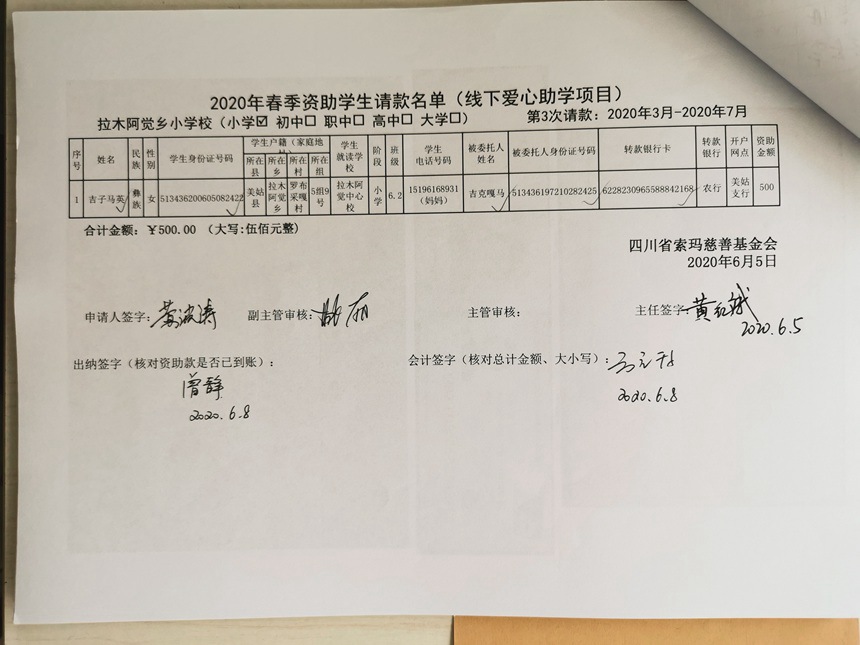 2020年春季资助学生请款名单（线下爱心助学项目）
拉木阿觉乡小学校（小学☑ 初中☐ 职中☐ 高中☐ 大学☐）　第3次请款：2020年3月-2020年7月
序号 姓名 民族 性别 学生身份证号码 学生户籍（家庭地 所在县 所在乡 所在村 所在组 学生就读学校 阶段 班级 学生电话号码 被委托人姓名 被委托人身份证号码 转款银行卡 转款银行 开户网点 资助金额
1 吉子马英 彝族 女 513436200605082422 美姑县 拉木阿觉乡 罗布采嘎村 5组9号 拉木阿觉中心校 小学 6.2 15196168931（妈妈） 吉克嘎马 513436197210282425 6228230965588842168 农行 美姑支行 500
合计金额：￥500.00 （大写:伍佰元整）
四川省索玛慈善基金会
2020年6月5日
申请人签字：黄波涛　副主管审核：　主管审核：　主任签字：黄红斌
2020.6.5
出纳签字（核对资助款是否已到账）：　会计签字（核对总计金额、大小写）：
曾静
2020.6.8　2020.6.8